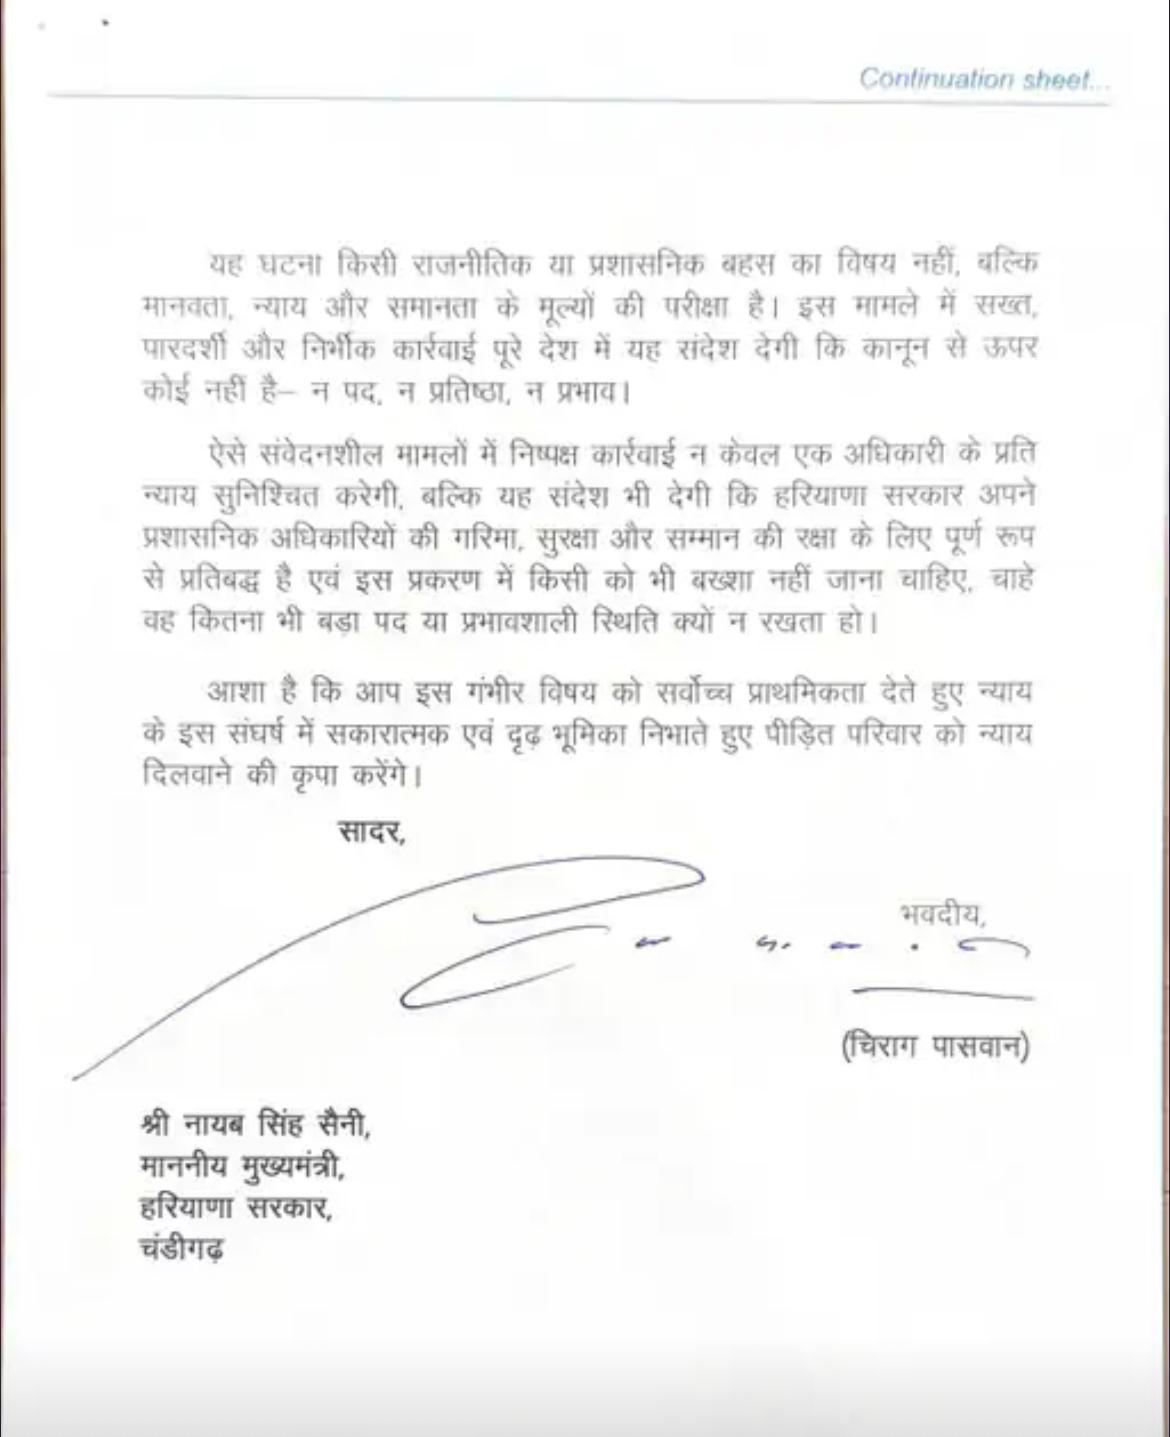 Continuation sheet...
यह घटना किसी राजनीतिक या प्रशासनिक बहस का विषय नहीं, बल्कि
मानवता, न्याय और समानता के मूल्यों की परीक्षा है। इस मामले में सख्त,
पारदर्शी और निर्भीक कार्रवाई पूरे देश में यह संदेश देगी कि कानून से ऊपर
कोई नहीं है– न पद, न प्रतिष्ठा, न प्रभाव।
ऐसे संवेदनशील मामलों में निष्पक्ष कार्रवाई न केवल एक अधिकारी के प्रति
न्याय सुनिश्चित करेगी, बल्कि यह संदेश भी देगी कि हरियाणा सरकार अपने
प्रशासनिक अधिकारियों की गरिमा, सुरक्षा और सम्मान की रक्षा के लिए पूर्ण रूप
से प्रतिबद्ध है एवं इस प्रकरण में किसी को भी बख्शा नहीं जाना चाहिए, चाहे
वह कितना भी बडा पद या प्रभावशाली स्थिति क्यों न रखता हो।
आशा है कि आप इस गंभीर विषय को सर्वोच्च प्राथमिकता देते हुए न्याय
के इस संघर्ष में सकारात्मक एवं दृढ़ भूमिका निभाते हुए पीड़ित परिवार को न्याय
दिलवाने की कृपा करेंगे।
सादर,
भवदीय,
(चिराग पासवान)
श्री नायब सिंह सैनी,
माननीय मुख्यमंत्री,
हरियाणा सरकार,
चंडीगढ़